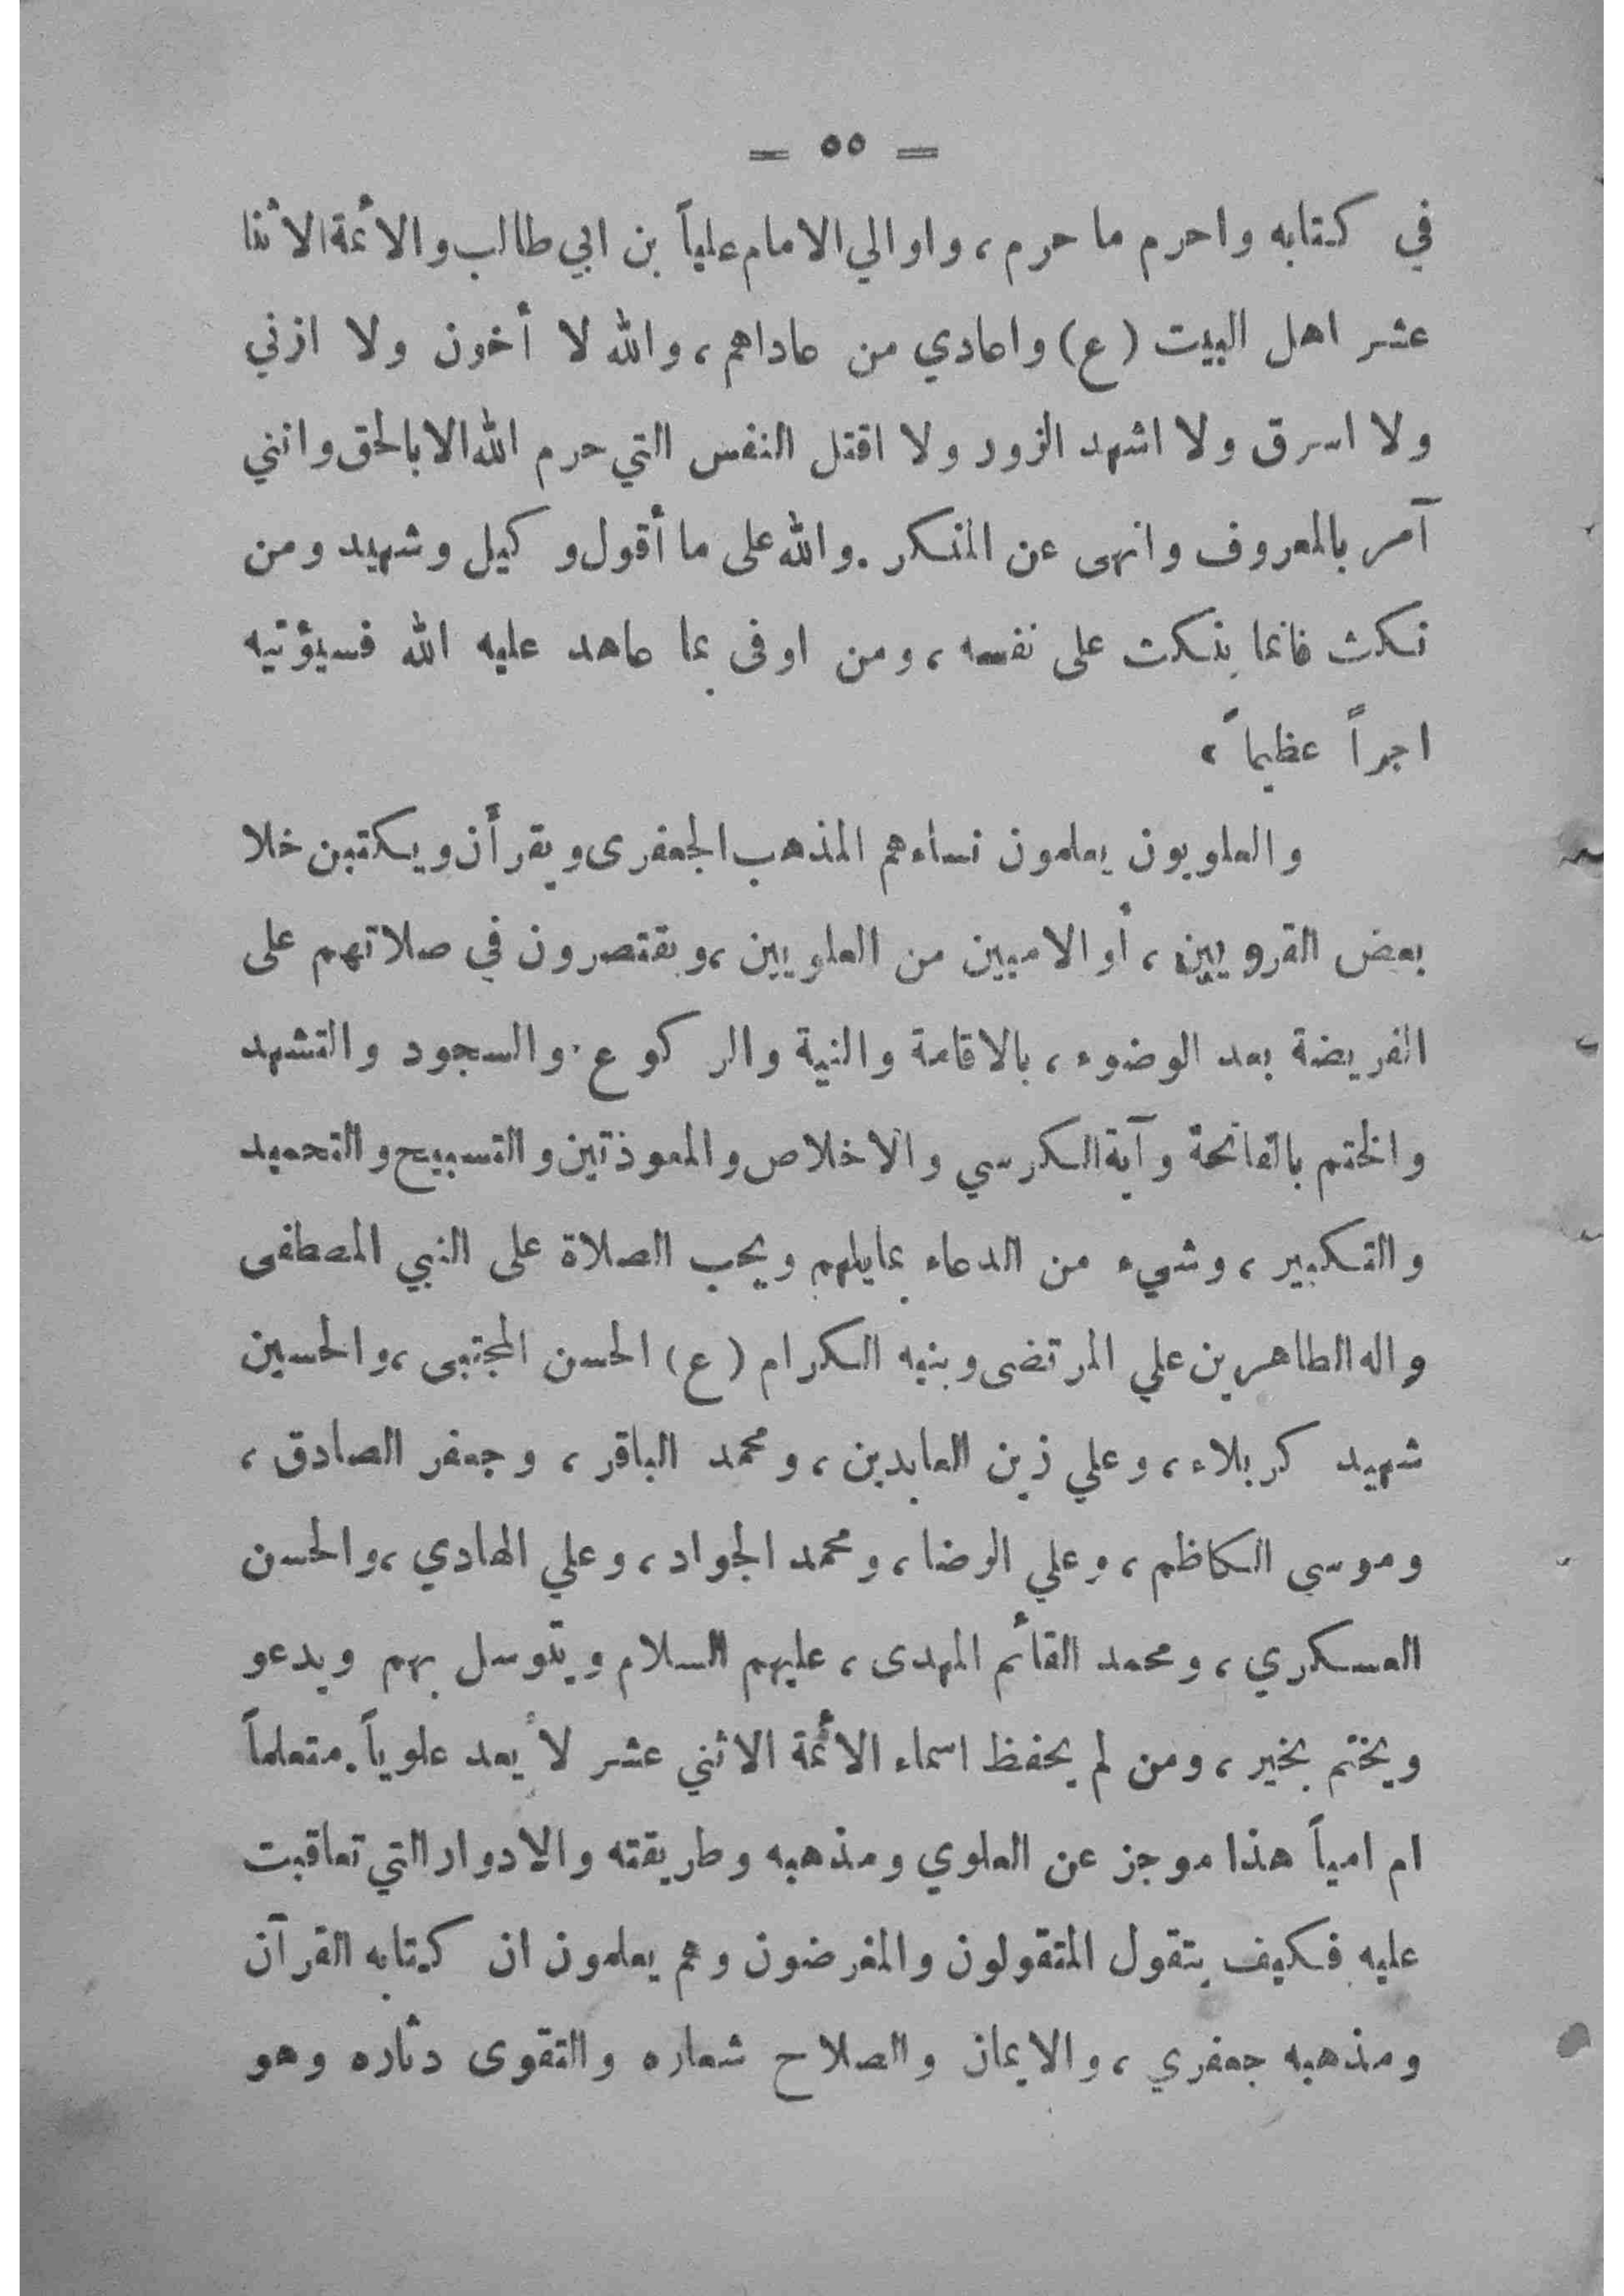 = ٥٥ =
في كتابه واحرم ما حرم، واوالي الامام علياً بن ابي طالب والأئمة الاثنا
عشر اهل البيت (ع) واعادي من عاداهم، والله لا أخون ولا ازني
ولا اسرق ولا اشهد الزور ولا اقتل النفس التي حرم الله الا بالحق وانني
آمر بالمعروف وانهى عن المنكر. والله على ما أقول وكيل وشهيد ومن
نكث فانما ينكث على نفسه، ومن اوفى بما عاهد عليه الله فسيؤتيه
اجراً عظيماً،
والعلويون يعلمون نساءهم المذهب الجعفرى ويقرأن ويكتبن خلا
بعض القرويين، أو الاميين من العلويين، ويقتصرون في صلاتهم على
الفريضة بعد الوضوء، بالاقامة والنية والركوع. والسجود والتشهد
والختم بالفاتحة وآية الكرسي والاخلاص والمعوذتين والتسبيح والتحميد
والتكبير، وشيء من الدعاء بما يلهم ويحب الصلاة على النبي المصطفى
واله الطاهرين علي المرتضى وبنيه الكرام (ع) الحسن المجتبى، والحسين
شهيد كربلاء، وعلي زين العابدين، ومحمد الباقر، وجعفر الصادق،
وموسى الكاظم، وعلي الرضا، ومحمد الجواد، وعلي الهادي، والحسن
العسكري، ومحمد القأم المهدى، عليهم السلام ويتوسل بهم ويدعو
ويختم بخير، ومن لم يحفظ اسماء الأئمة الاثني عشر لا يعد علوياً. متعلماً
ام امياً هذا موجز عن العلوي ومذهبه وطريقته والادوار التي تعاقبت
عليه فكيف يتقول المتقولون والمغرضون وهم يعلمون ان كتابه القرآن
ومذهبه جعفري، والايمان والصلاح شعاره والتقوى دثاره وهو